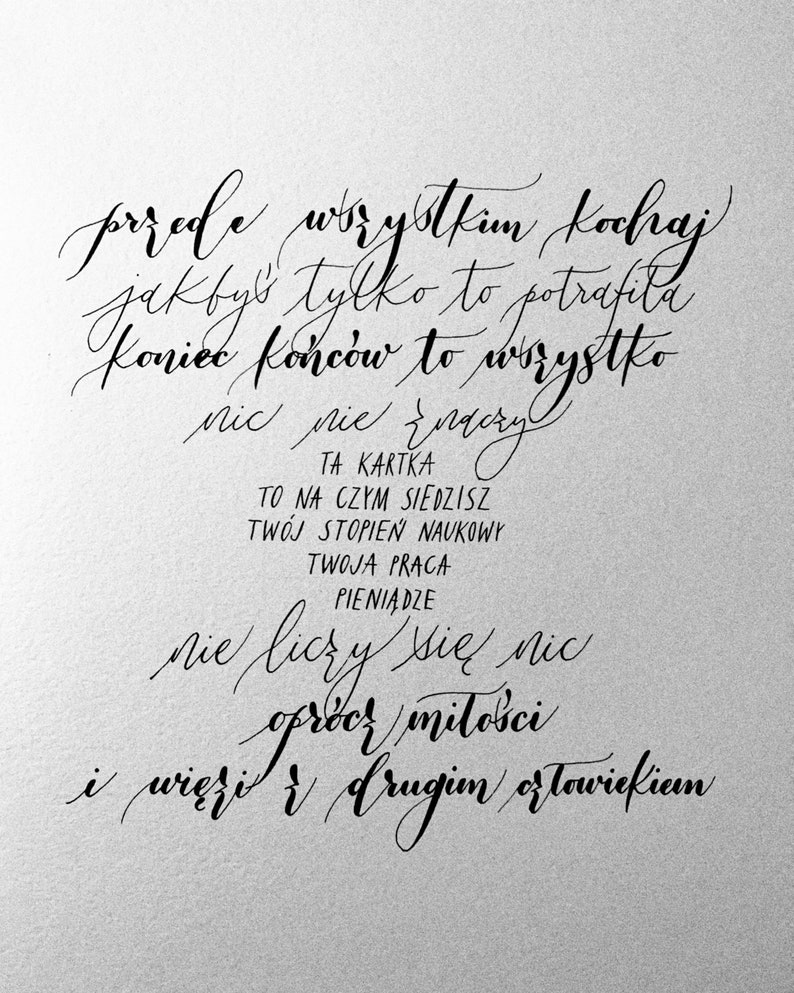 przede wszystkim kochaj
jakbyś tylko to potrafiła
koniec końców to wszystko
nic nie znaczy
TA KARTKA
TO NA CZYM SIEDZISZ
TWÓJ STOPIEŃ NAUKOWY
TWOJA PRACA
PIENIĄDZE
nie liczy się nic
oprócz miłości
i więzi z drugim człowiekiem